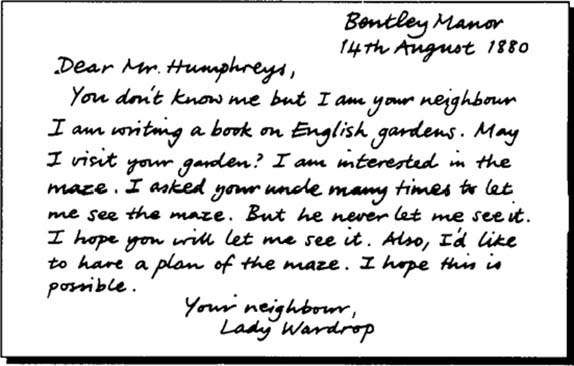 Bentley Manor
14th August 1880
Dear Mr. Humphreys,
You don't know me but I am your neighbour
I am writing a book on English gardens. May
I visit your garden? I am interested in the
maze. I asked your uncle many times to let
me see the maze. But he never let me see it.
I hope you will let me see it. Also, I'd like
to have a plan of the maze. I hope this is
possible.
Your neighbour,
Lady Wardrop